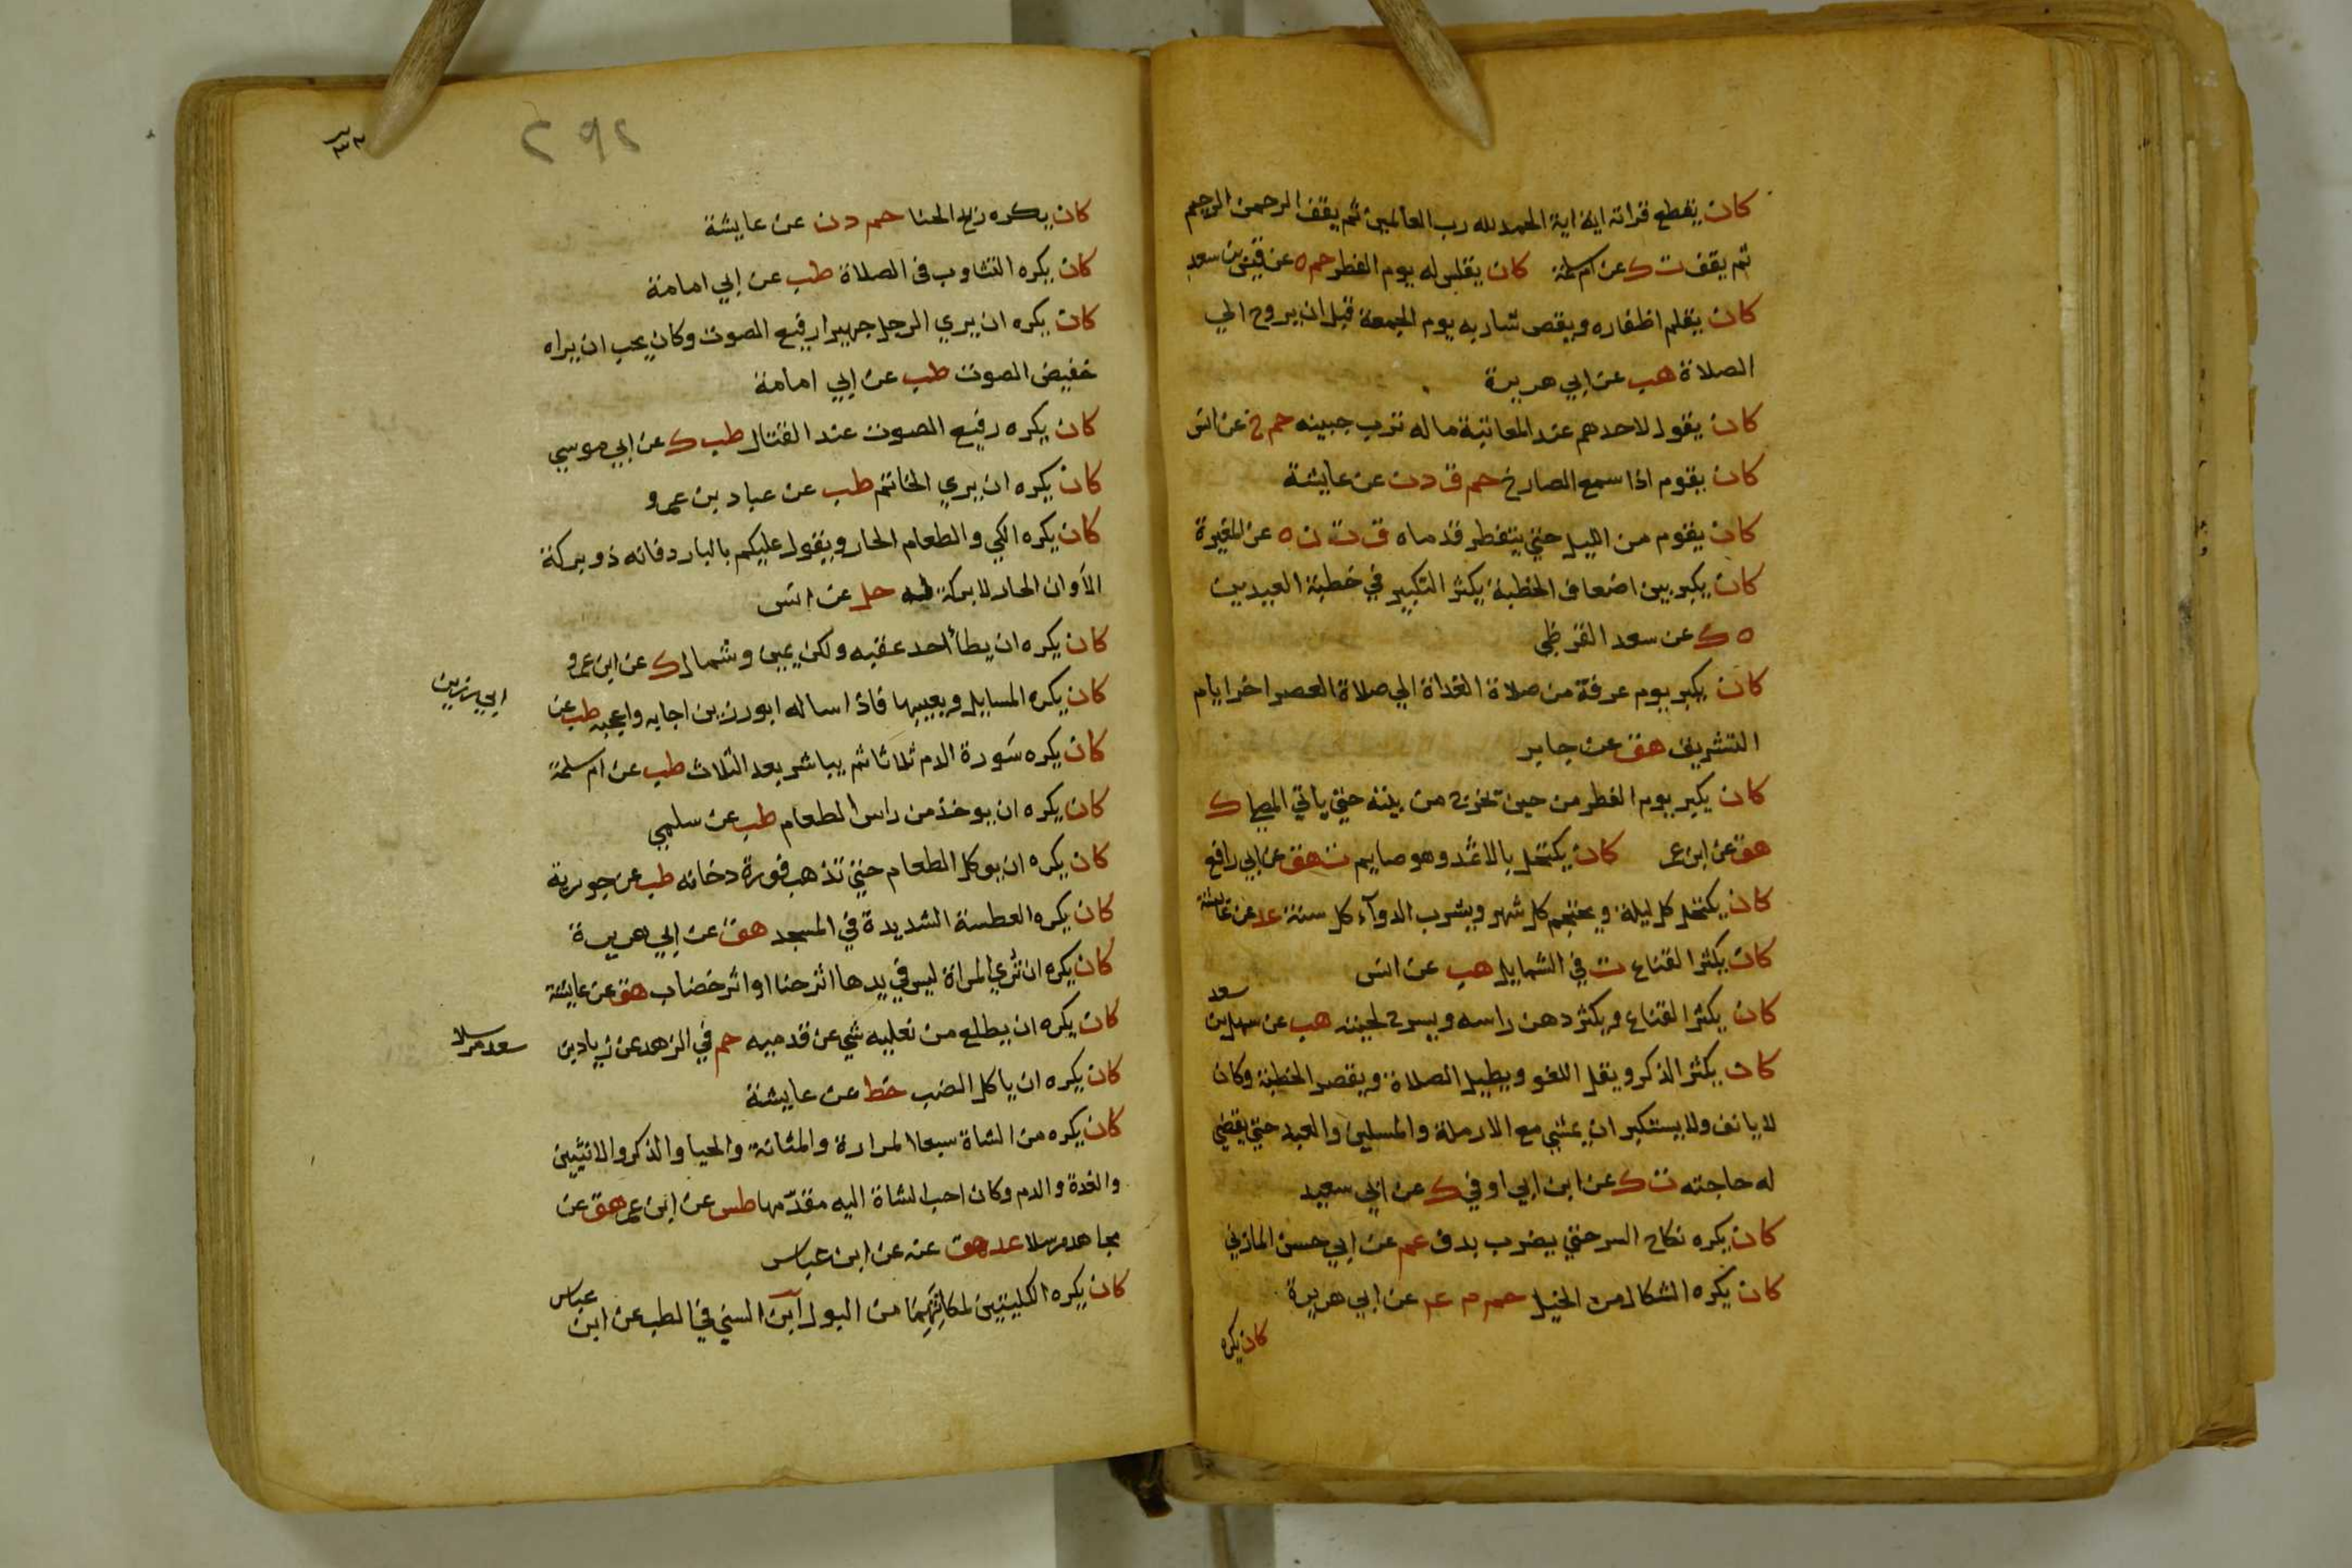 كان يقطع قراته اية اية الحمد لله رب العالمين ثم يقف الرحمن الرحيم
ثم يقف ت ك عن ام سلمة كان يقلس له يوم الفطر حم ه عن قيس بن سعد
كان يقلم اظفاره ويقص شاربه يوم الجمعة قبل ان يروح الي
الصلاة هب عن ابي هريرة
كان يقول لاحدهم عند المعاتبة ما له ترب جبينه حم خ عن انس
كان يقوم اذا سمع الصارخ حم ق د ن عن عايشة
كان يقوم من الليل حتي يتفطر قدماه ق ت ن ه عن المغيرة
كان يكبر بين اضعاف الخطبة يكثر التكبير في خطبة العيدين
ه ك عن سعد القرظي
كان يكبر يوم عرفة من صلاة الغداة الي صلاة العصر اخر ايام
التشريق هق عن جابر
كان يكبر يوم الفطر من حين يخرج من بيته حتي ياتي المصلي ك
هق عن ابن عمر كان يكتحل بالاثمد وهو صايم ت هق عن ابي رافع
كان يكتحل كل ليلة ويحتجم كل شهر ويشرب الدوآء كل سنة عد عن عائشة
كان يكثر القناع ت في الشمايل هب عن انس
كان يكثر القناع ويكثر دهن راسه ويسرح لحيته هب عن سهل بن سعد
كان يكثر الذكر ويقل اللغو ويطيل الصلاة ويقصر الخطبة وكان
لا يانف ولا يستكبر ان يمشي مع الارملة والمسلين والعبد حتي يقضي
له حاجته ن ك عن ابن ابي اوفي ك عن ابي سعيد
كان يكره نكاح السر حتي يضرب بدف عم عن ابي حسن المازني
كان يكره الشكال من الخيل حم م عم عن ابي هريرة
كان يكره
٢٩٢
كان يكره ريح الحنا حم د ن عن عايشة
كان يكره التثاوب في الصلاة طب عن ابي امامة
كان يكره ان يري الرجل جهيرا رفيع الصوت وكان يحب ان يراه
خفيض الصوت طب عن ابي امامة
كان يكره رفيع الصوت عند القتال طب ك عن ابي موسي
كان يكره ان يري الخاتم طب عن عباد بن عمرو
كان يكره الكي والطعام الحار ويقول عليكم بالبارد فانه ذو بركة
الأوان الحار لا بركة له حل عن انس
كان يكره ان يطأ احد عقبه ولكن يمين وشمال ك عن ابن عمرو
كان يكره المسايل ويعيبها فاذا ساله ابو رزين اجابه واعجبه طب عن
ابي رزين
كان يكره سَورة الدم ثلاثا ثم يباشر بعد الثلاث طب عن ام سلمة
كان يكره ان يوخذ من راس الطعام طب عن سلمي
كان يكره ان يوكل الطعام حتي تذهب فورة دخانه طب عن جويرية
كان يكره العطسة الشديدة في المسجد هق عن ابي هريرة
كان يكره ان تُري المراة ليس في يدها اثر حنا او اثر خضاب هق عن عايشة
كان يكره ان يطلع من نعليه شي عن قدميه حم في الزهد عن زياد بن
سعد مرسلا
كان يكره ان ياكل الضب خط عن عايشة
كان يكره من الشاة سبعا المرارة والمثانة والحيا والذكر والانثيين
والغدة والدم وكان احب الشاة اليه مقدّمها طس عن ابن عمر هق عن
مجاهد مرسلا عد هق عنه عن ابن عباس
كان يكره الكليتين لمكانِهِمَا من البول ابن السني في الطب عن ابن عباس